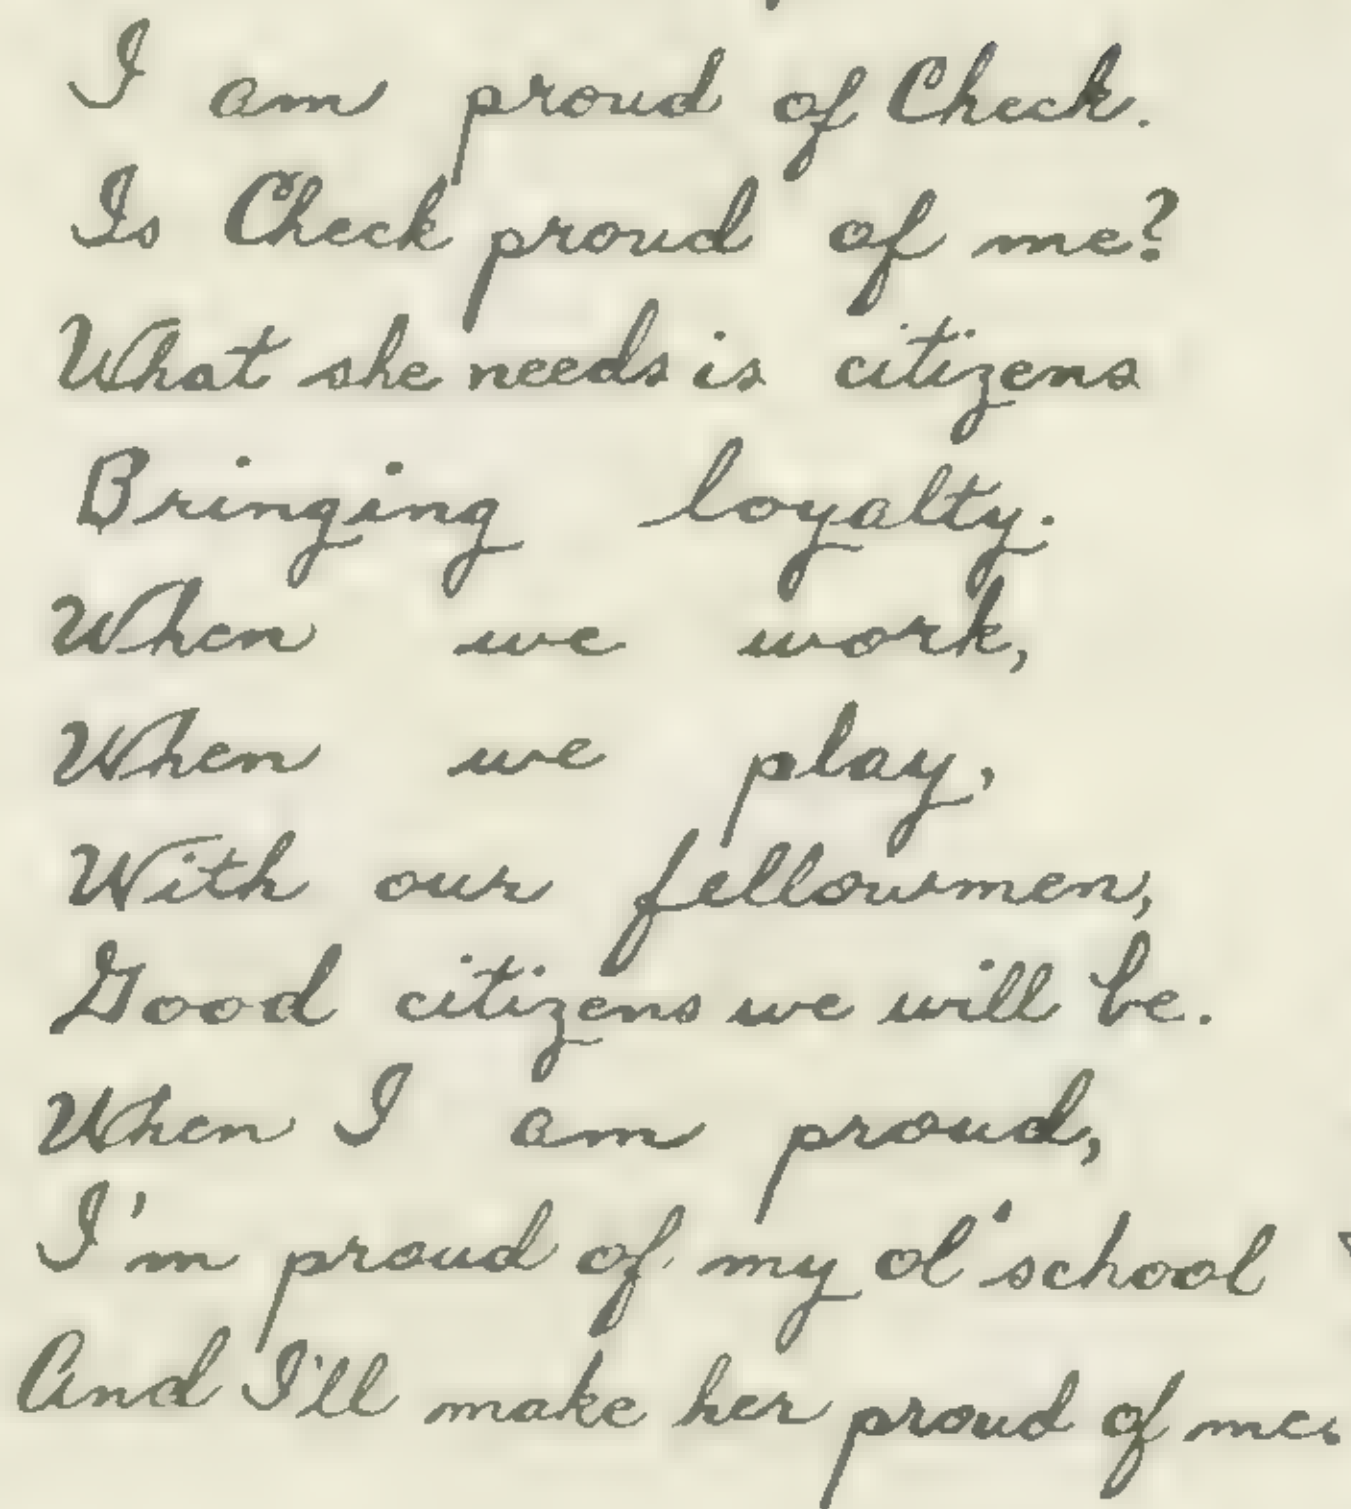 I am proud of Check.
Is Check proud of me?
What she needs is citizens
Bringing loyalty.
When we work,
When we play,
With our fellowmen,
Good citizens we will be.
When I am proud,
I'm proud of my ol' school
And I'll make her proud of me.